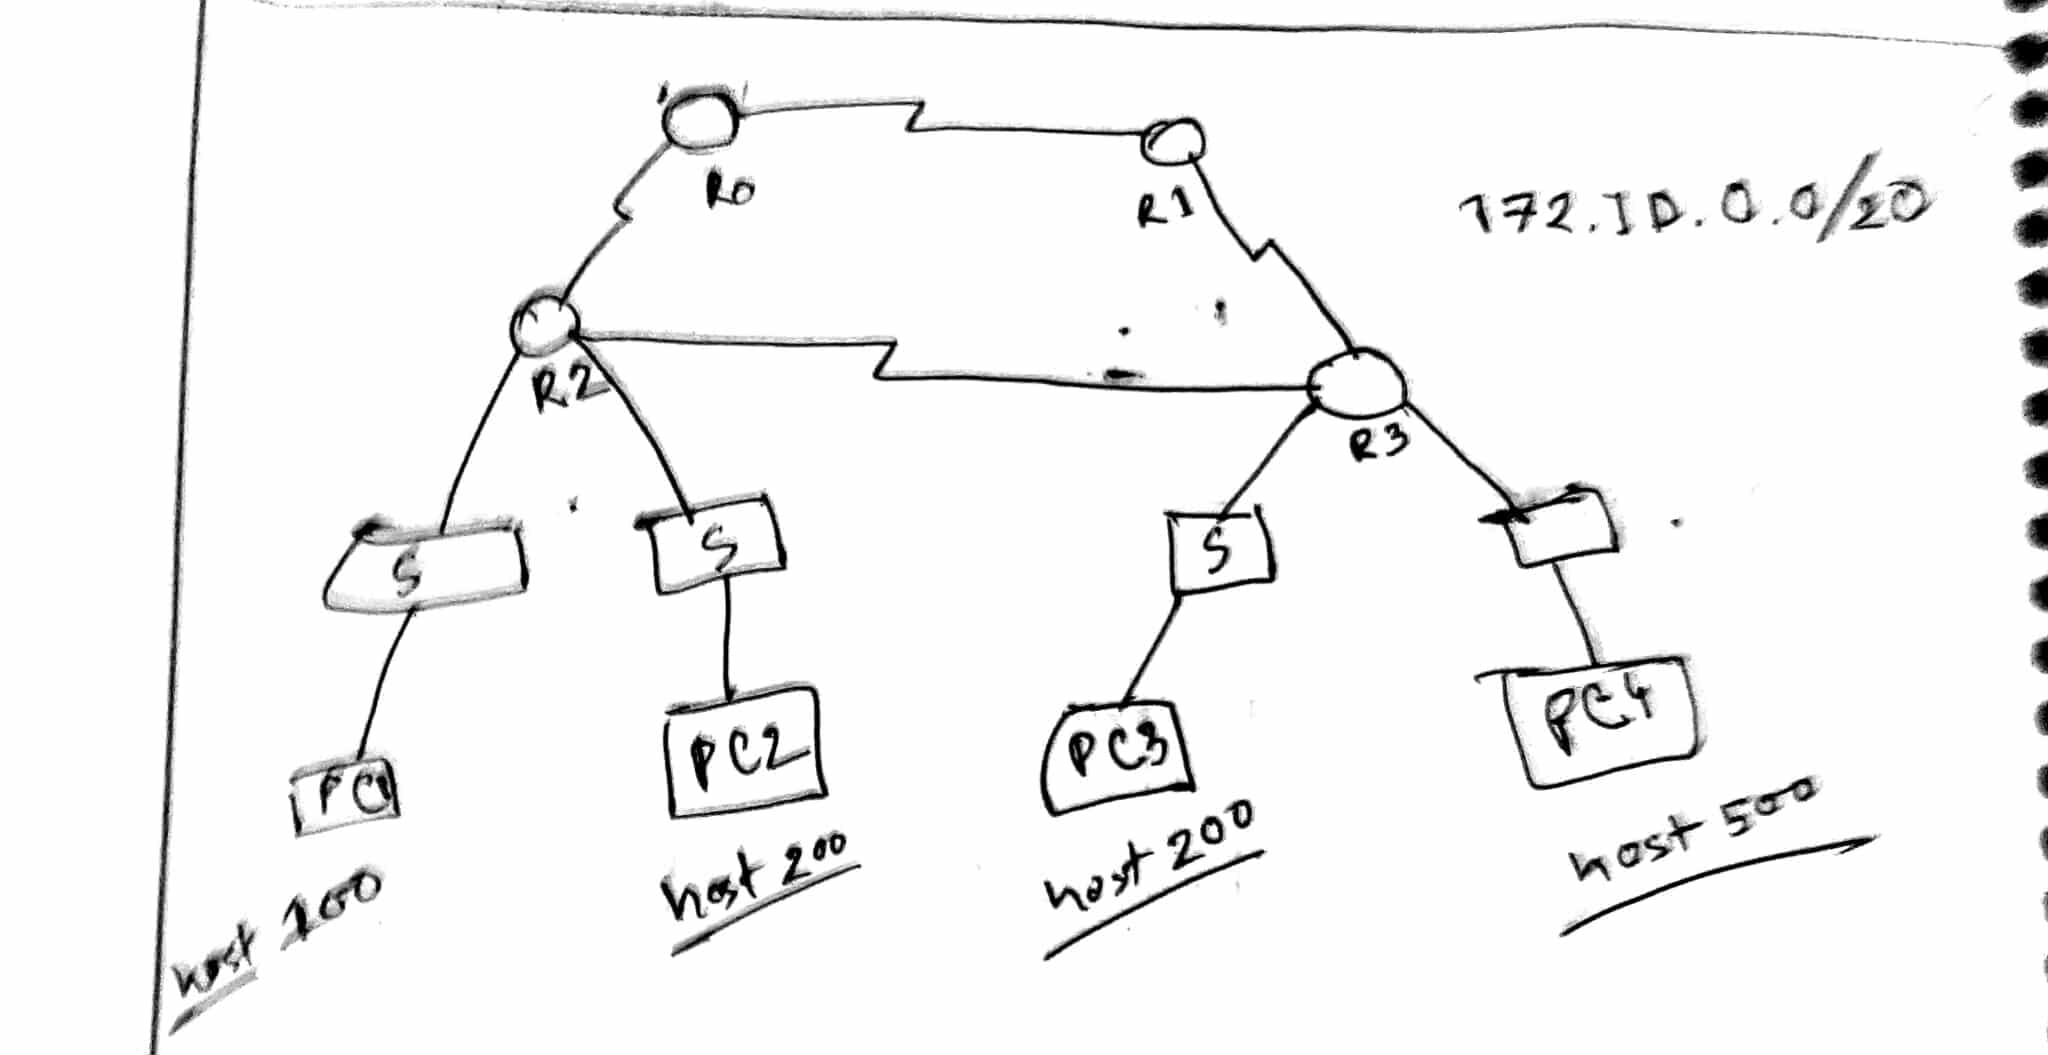 R0
R1
172.ID.0.0/20
R2
R3
S
S
S
PC1
PC2
PC3
PC4
host 100
host 200
host 200
host 500